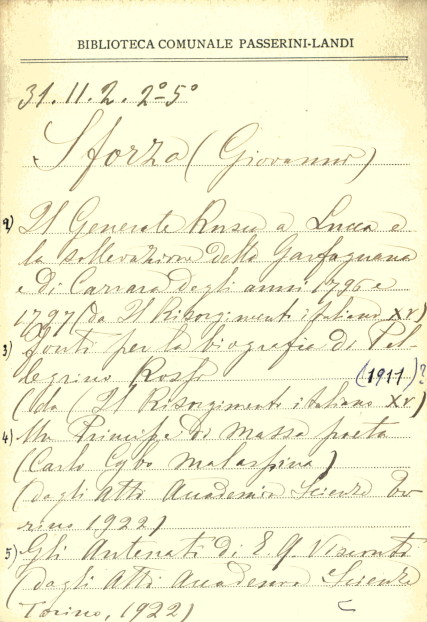 BIBLIOTECA COMUNALE PASSERINI-LANDI
31. II. 2. 2º-5º
Sforza (Giovanni)
2) Il Generale Rusca a Lucca e
la sollevazione della Garfagnana
e di Carrara degli anni 1796 e
1797 (da Il Risorgimento italiano XV)
3) Fonti per la biografia di Pel-
legrino Rossi (1911)?
(da Il Risorgimento italiano XV)
4) Un Principe di Massa poeta
(Carlo Cybo Malaspina)
(dagli Atti Accademia Scienze To-
rino 1922)
5) Gli Antenati di E. Q. Visconti
(dagli Atti Accademia Scienze
Torino, 1922)